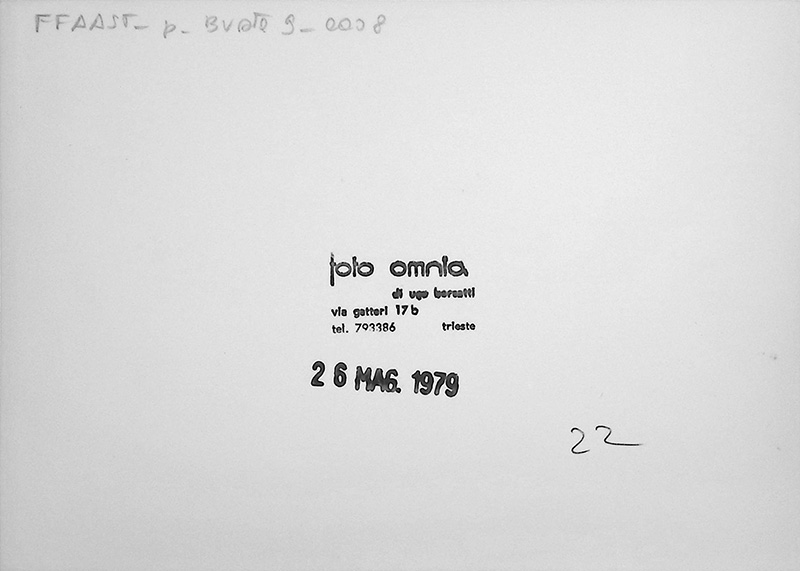 FFAAST_ p_ BUSTA 9_0008
foto omnia
di ugo borsatti
via gatteri 17b
tel. 793386 trieste
26 MAG. 1979
22